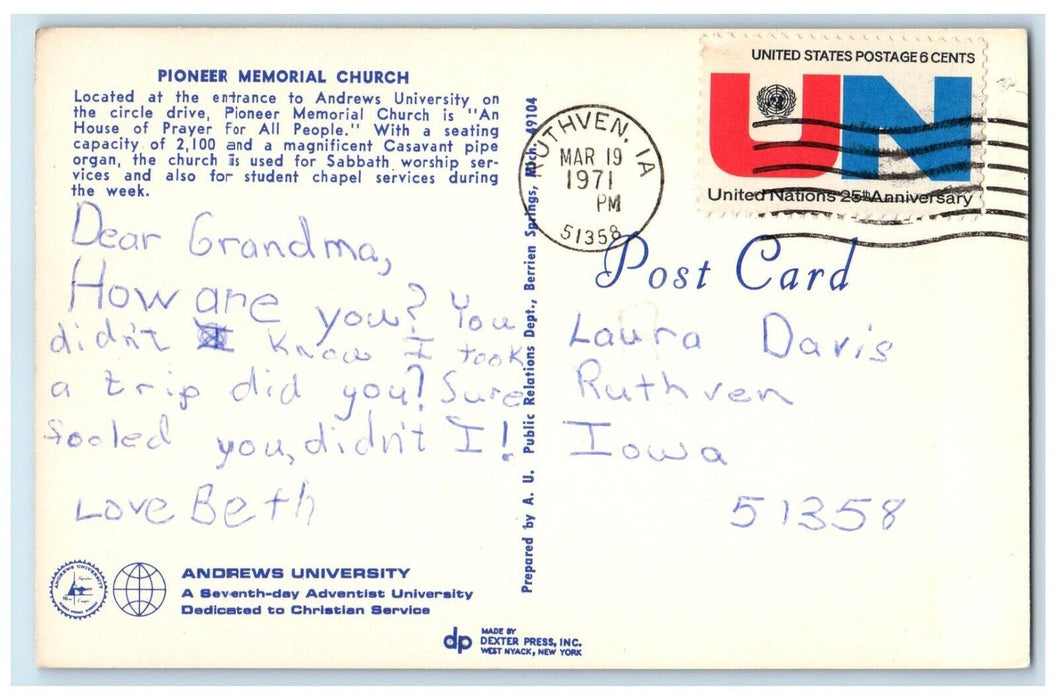 PIONEER MEMORIAL CHURCH
Located at the entrance to Andrews University on
the circle drive, Pioneer Memorial Church is "An
House of Prayer For All People." With a seating
capacity of 2,100 and a magnificent Casavant pipe
organ, the church is used for Sabbath worship ser-
vices and also for student chapel services during
the week.
Dear Grandma,
How are you? You
didn't I know I took
a trip did you? Sure
fooled you, didn't I!
Love Beth
ANDREWS UNIVERSITY
ANDREWS UNIVERSITY
A Seventh-day Adventist University
Dedicated to Christian Service
dp
MADE BY
DEXTER PRESS, INC.
WEST NYACK, NEW YORK
Prepared by A. U. Public Relations Dept., Berrien Springs, Mich. 49104
RUTHVEN, IA
MAR 19
1971
PM
51358
UNITED STATES POSTAGE 6 CENTS
UN
United Nations 25th Anniversary
Post Card
Laura Davis
Ruthven
Iowa
51358